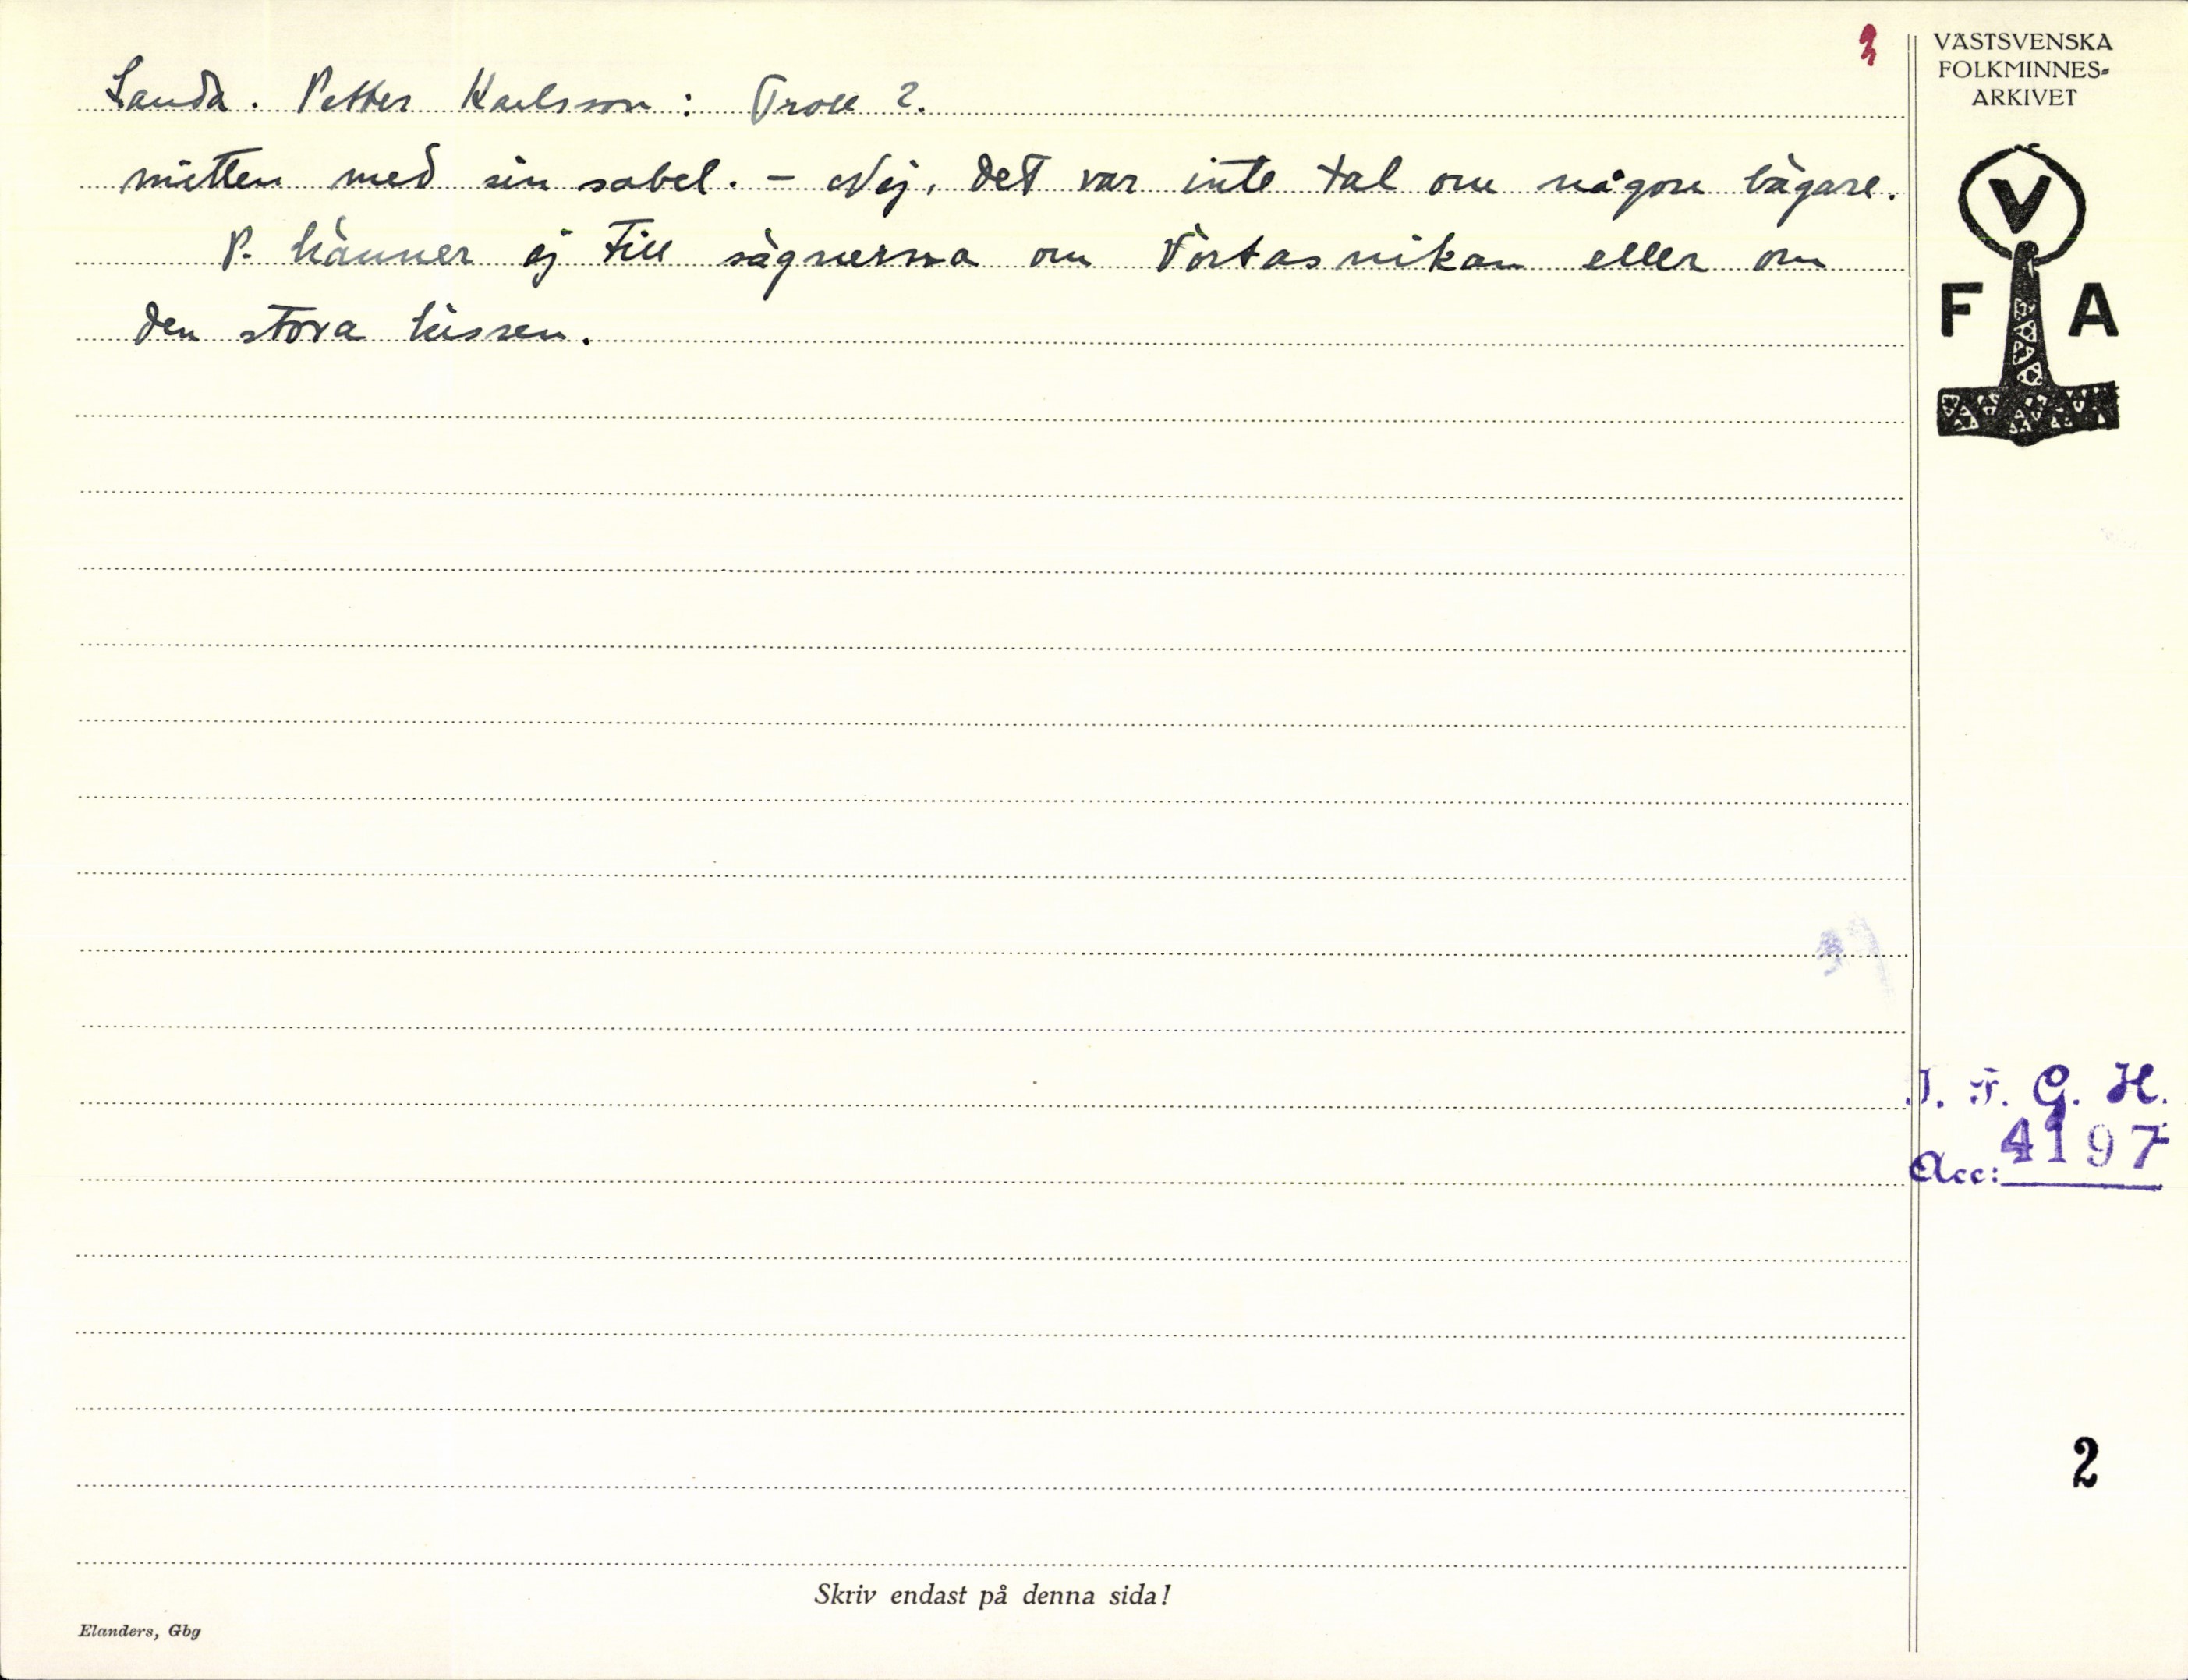 3
Landa. Petter Karlsson: Troll 2.
mitten med sin sabel. - Nej, det var inte tal om någon bägare.
P. känner ej till sägnerna om Vörtasnikan eller om
den stora hissen.
VÄSTSVENSKA
FOLKMINNES-
ARKIVET
V
F A
I. F. G. H.
Acc: 4197
2
Skriv endast på denna sida!
Elanders, Gbg